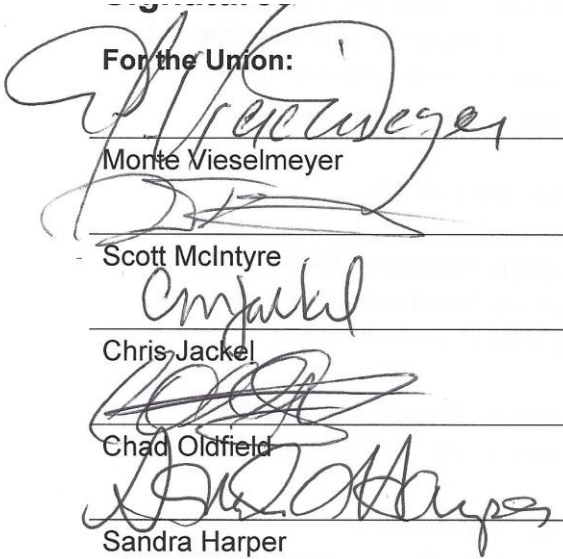 Signatures
For the Union:
Monte Vieselmeyer
Scott McIntyre
CmJackel
Chris Jackel
Chad Oldfield
Sandra Harper